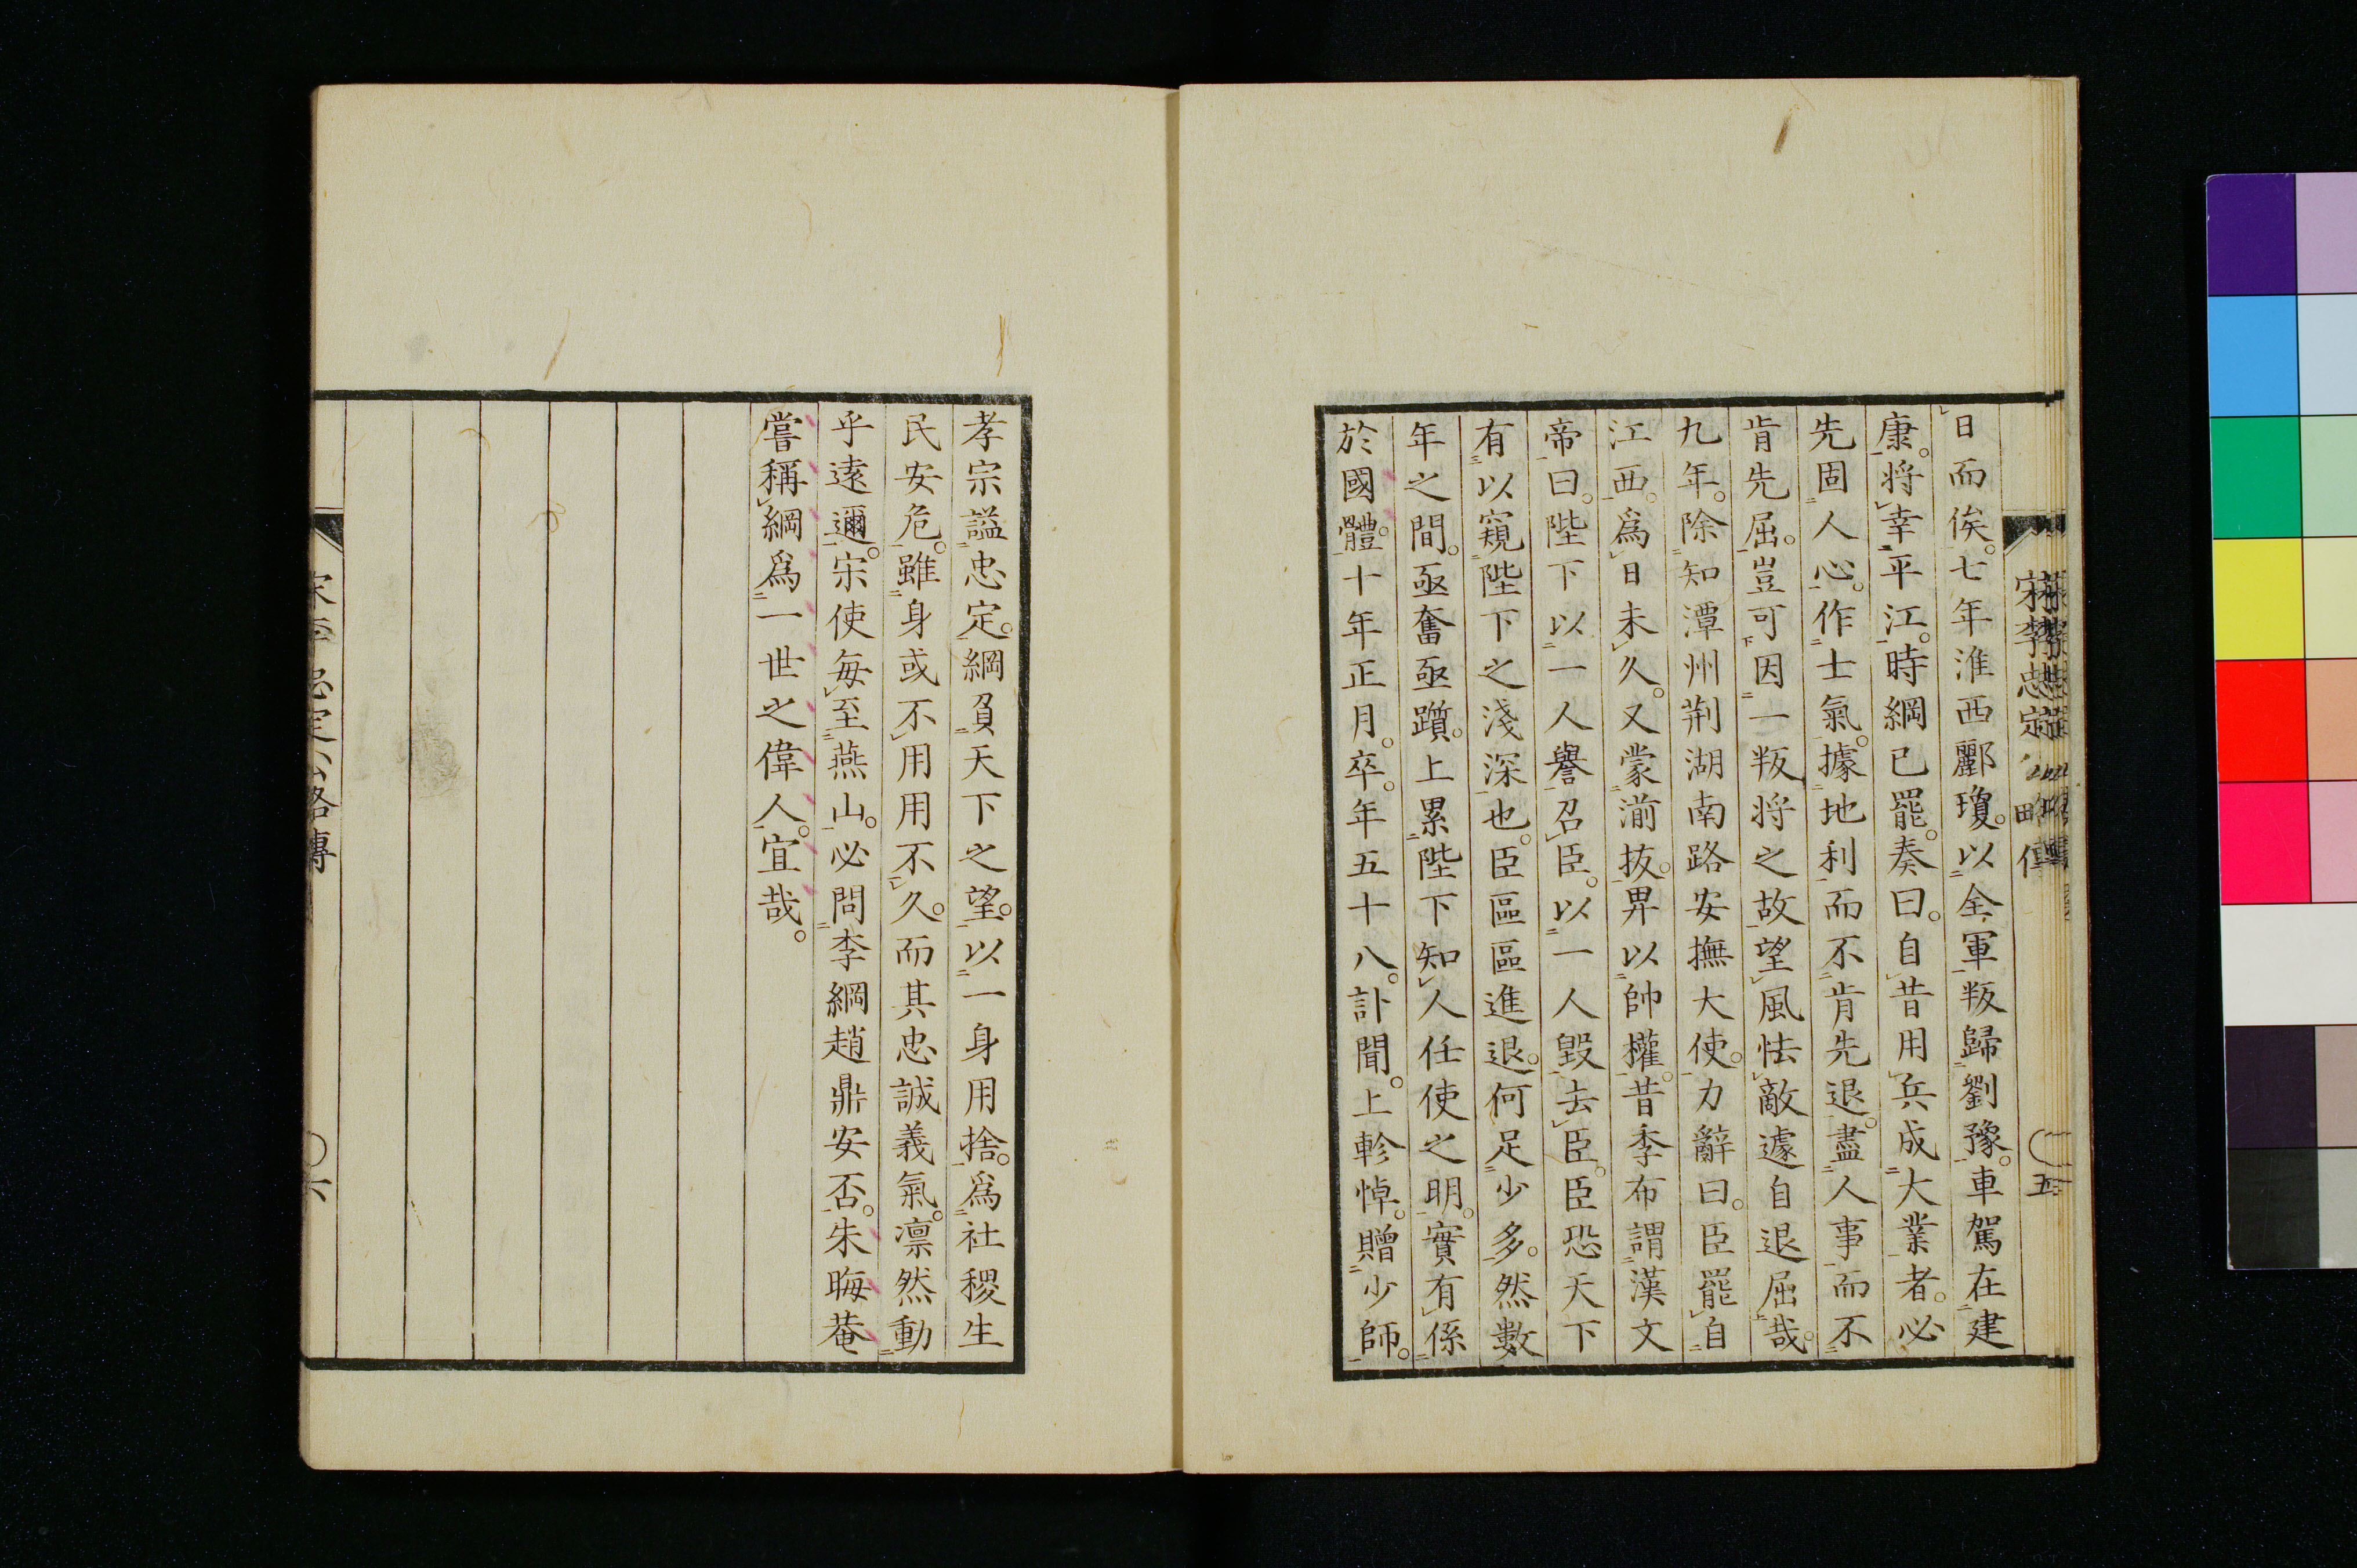 日而俟。七年淮西酈瓊。以全軍叛歸劉豫。車駕在建
康。將幸平江。時綱已罷。奏曰。自昔用兵成大業者。必
先固人心。作士氣。據地利而不肯先退。盡人事而不
肯先屈。豈可因一叛將之故望風怯敵遽自退屈哉。
九年。除知潭州荆湖南路安撫大使。力辭曰。臣罷自
江西。爲日未久。又蒙湔拔。畀以帥權。昔季布謂漢文
帝曰。陛下以一人譽召臣。以一人毀去臣。臣恐天下
有以窺陛下之淺深也。臣區區進退。何足少多。然數
年之間。亟奮亟躓。上累陛下知人任使之明。實有係
於國體。十年正月。卒。年五十八。訃聞。上軫悼。贈少師。
孝宗謚忠定。綱負天下之望。以一身用捨。爲社稷生
民安危。雖身或不用用不久。而其忠誠義氣。凛然動
乎遠邇。宋使每至燕山。必問李綱趙鼎安否。朱晦菴
嘗稱綱爲一世之偉人。宜哉。
宋李忠定公略傳
五
六